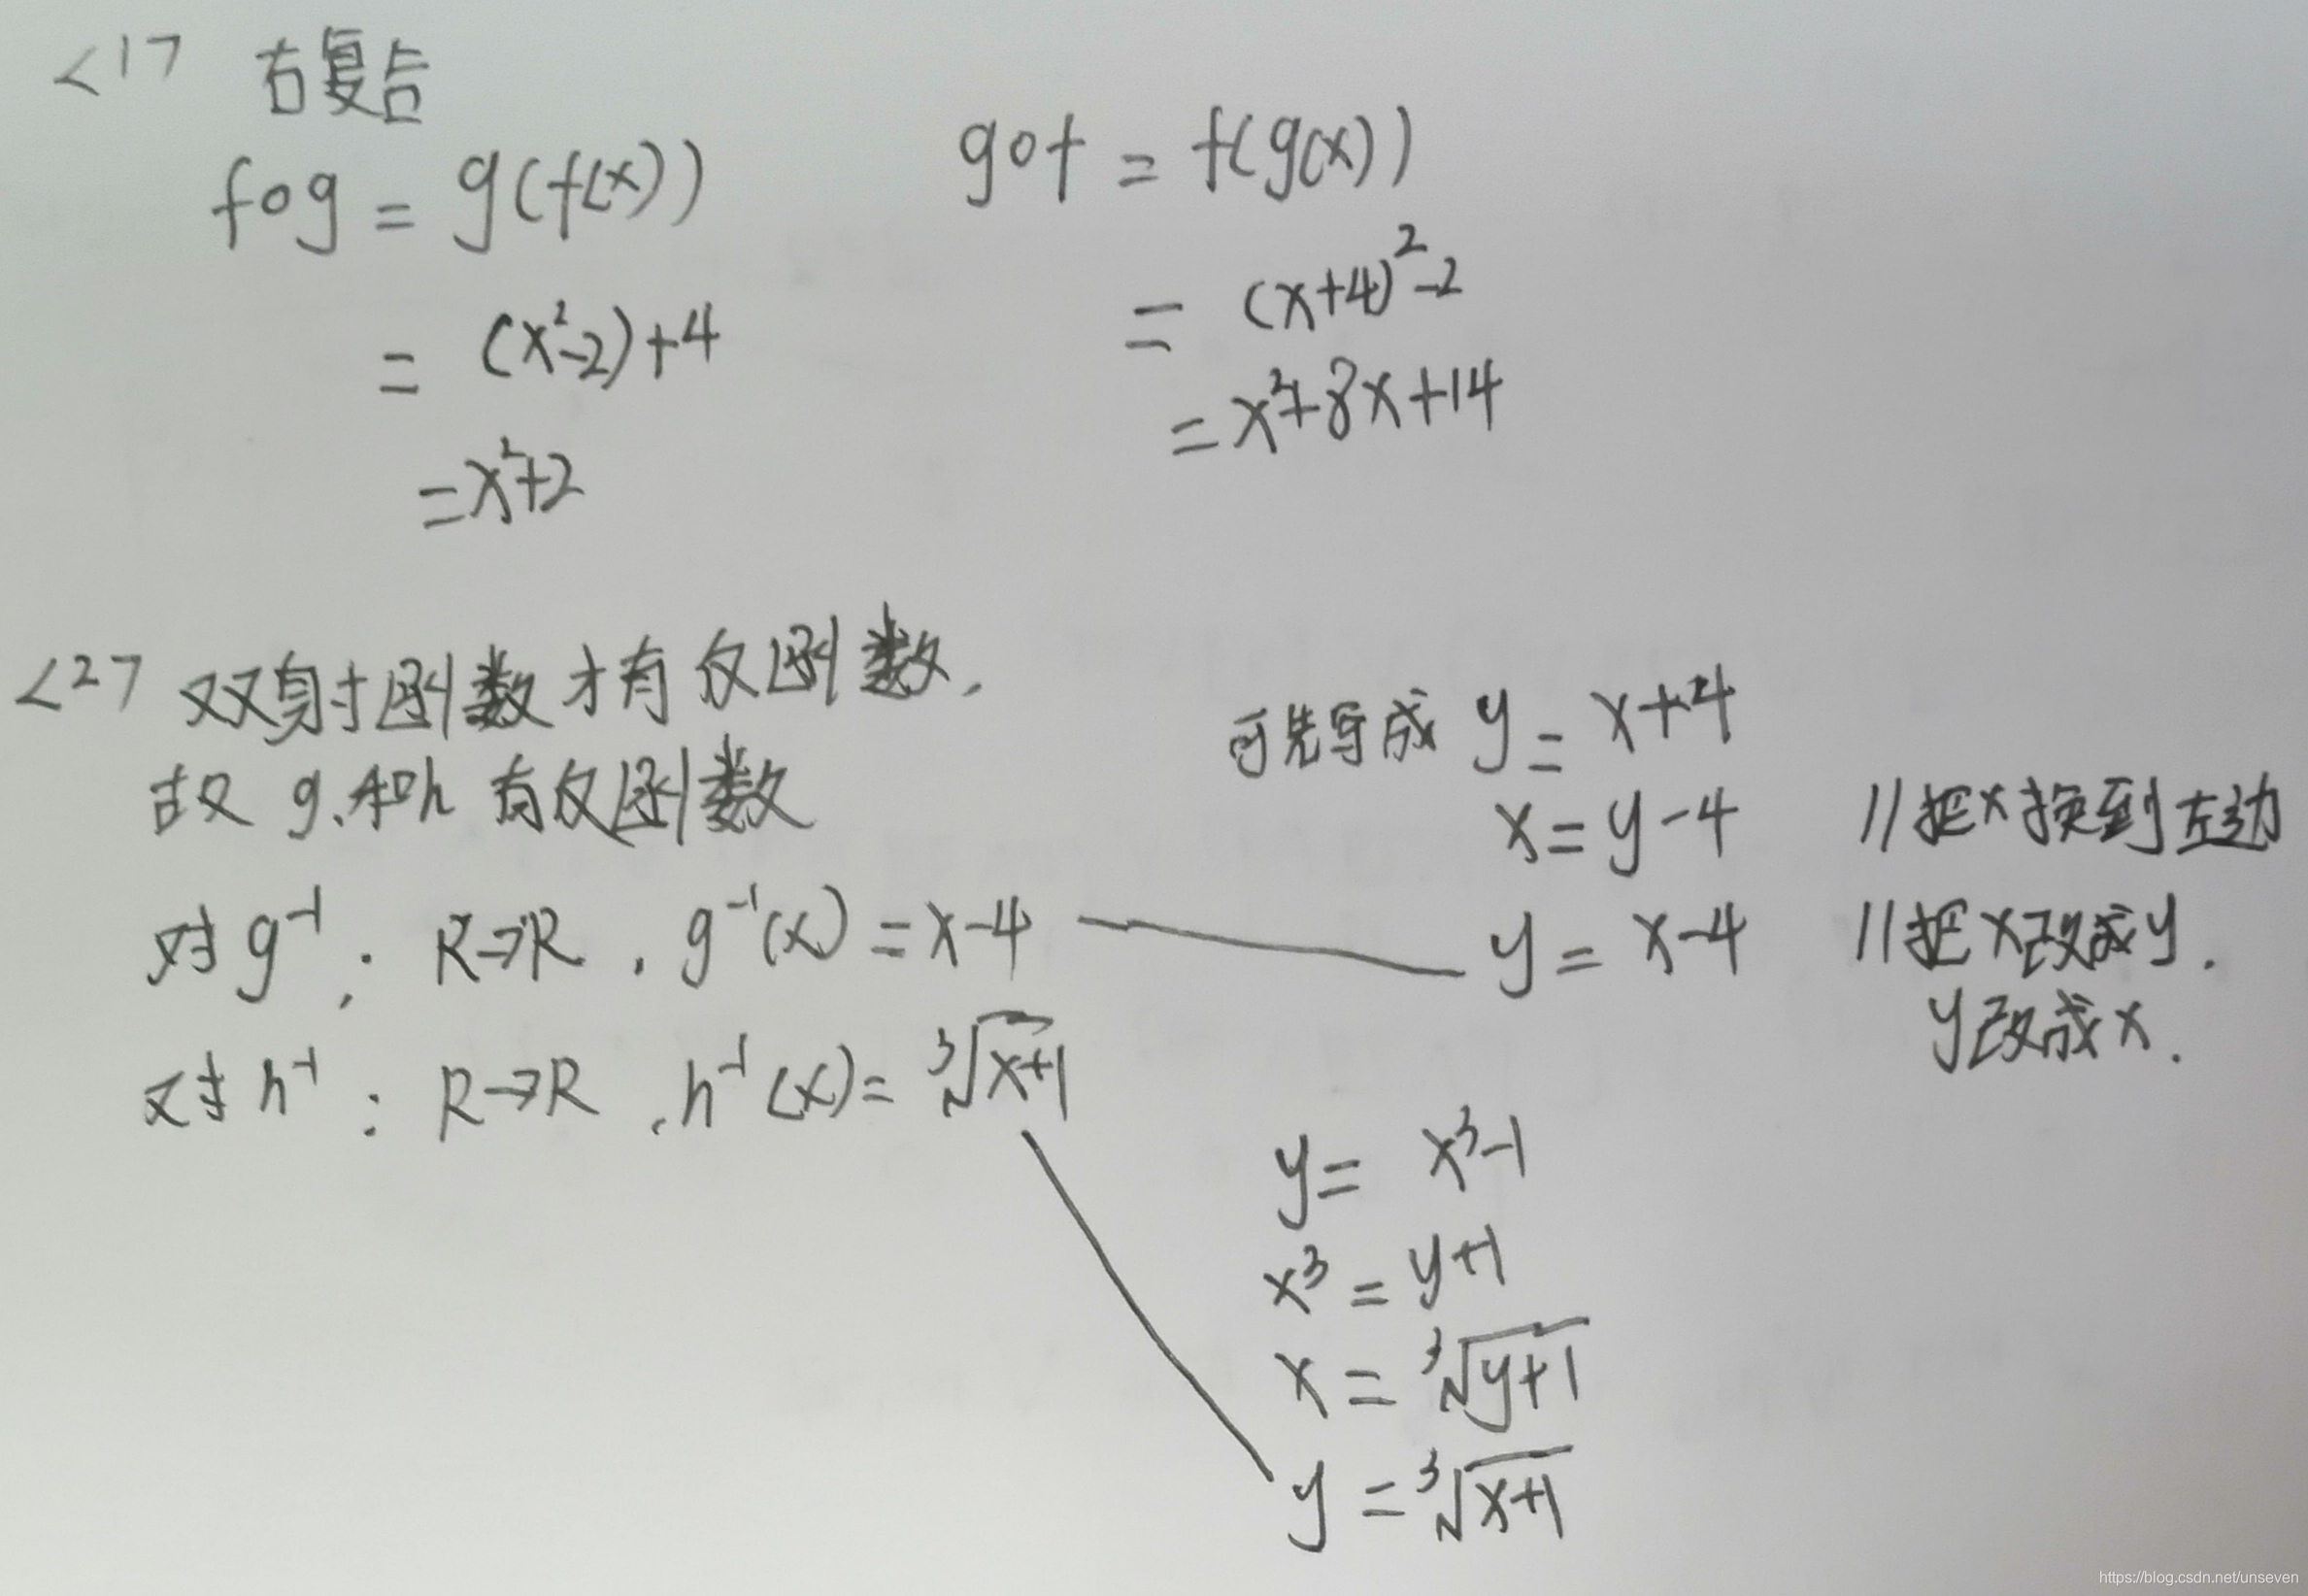 <1> 右复合
fog = g(f(x))
= (x²-2)+4
= x²+2
gof = f(g(x))
= (x+4)²-2
= x²+8x+14
<2> 双射函数才有反函数,
故 g、和h 有反函数
对 g⁻¹: R→R, g⁻¹(x) = x-4
对 h⁻¹: R→R, h⁻¹(x) = ³√(x+1)
可先写成 y = x+4
x = y-4 //把x换到左边
y = x-4 //把x改成y.
y改成x.
y = x³-1
x³ = y+1
x = ³√(y+1)
y = ³√(x+1)
https://blog.csdn.net/unseven